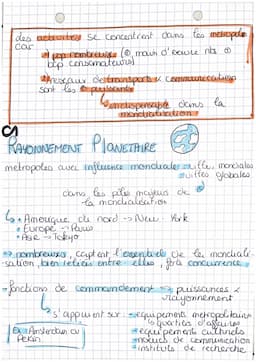 des activités se concentrent dans les métropole
car
1) pop nombreuse (⊕ main d'oeuvre nbs ⊕
pop consomateurs)
2) réseaux de transports & communication
sont les ⊕ puissants
↳ indispensable dans la
mondialisation
RAYONNEMENT PLANETAIRE
métropoles avec influence mondiale villes mondiales
villes globales
dans les pôles majeurs de
la mondialisation
↳ • Amérique du nord → New-York
• Europe → Paris
• Asie → Tokyo
→ nombreuses, captent l'essentiel de la mondiali-
sation, bien reliées entre elles, concurrence
- fonctions de commandement → puissances &
rayonnement
↳ s'appuient sur : - équipements métropolitains
↳ quartiers d'affaires
- équipements culturels
- noeuds de communication
- instituts de recherche
Ex: Amsterdam ou
Pékin